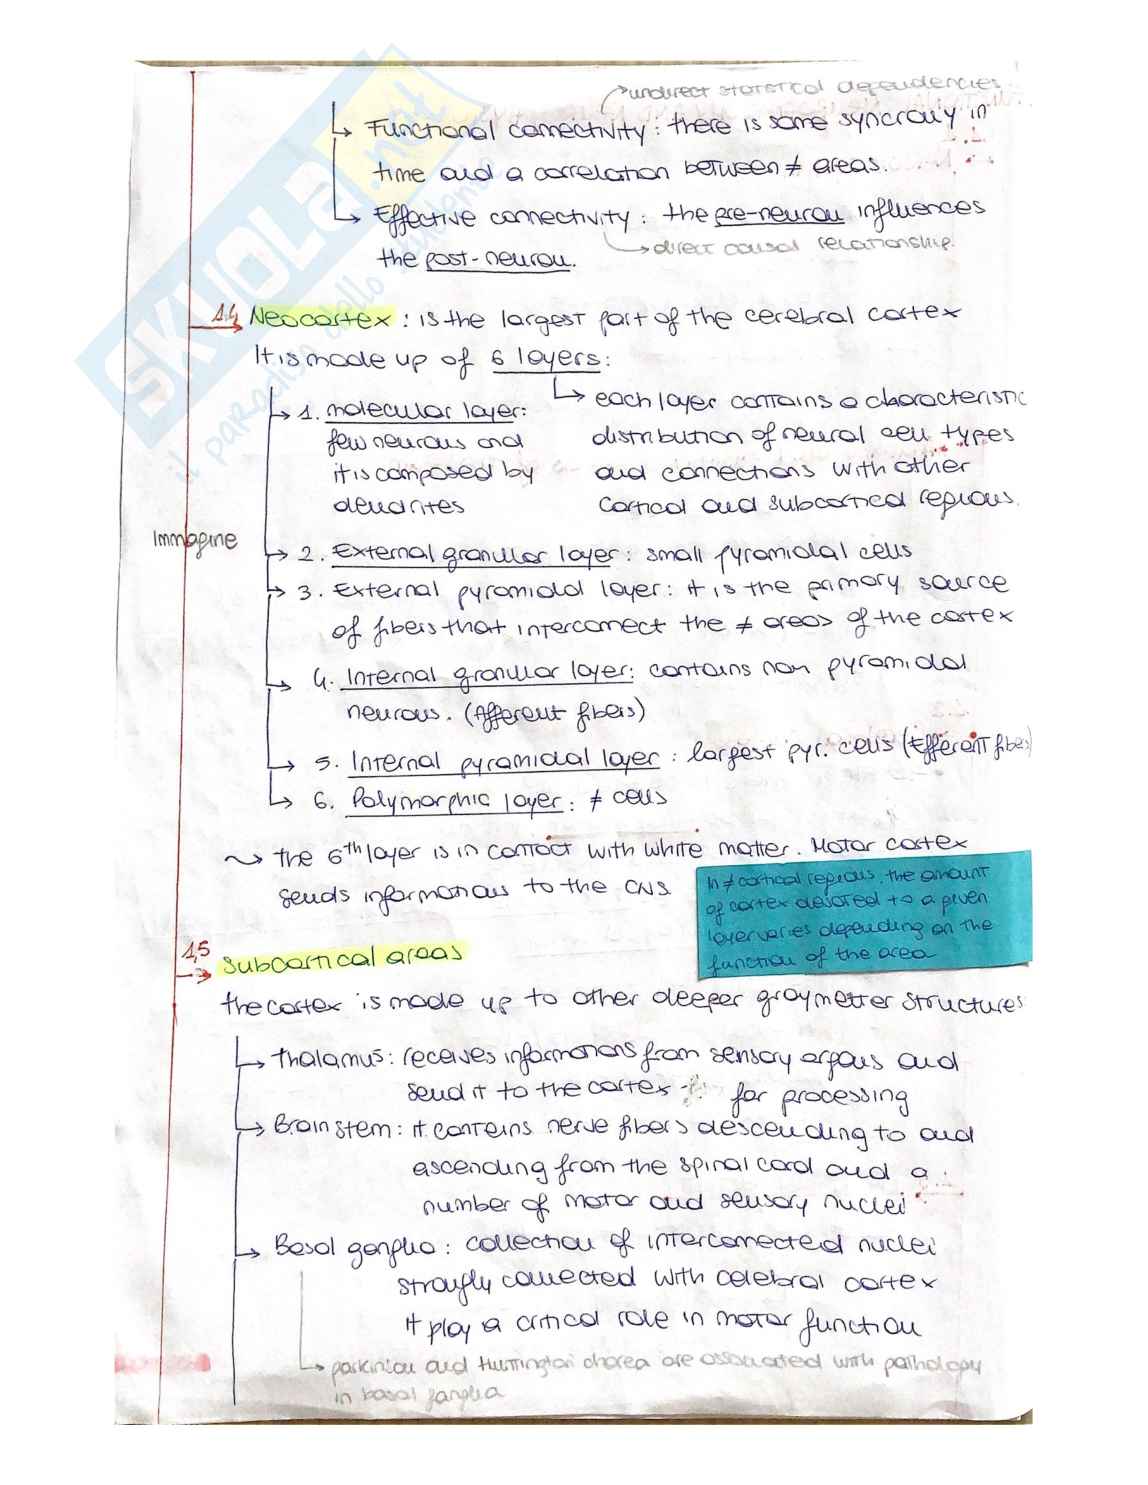 indirect statistical dependencies
Functional connectivity: there is some syncrony in
time and a correlation between ≠ areas.
Effective connectivity: the pre-neuron influences
direct causal relationship.
the post-neuron.
1.4 Neocortex: is the largest part of the cerebral cortex
It is made up of 6 layers:
each layer contains a characteristic
distribution of neural cell types
and connections with other
cortical and subcortical regions.
1. molecular layer:
few neurons and
it is composed by
dendrites
Immagine
2. External granular layer: small pyramidal cells
3. External pyramidal layer: it is the primary source
of fibers that interconnect the ≠ areas of the cortex
4. Internal granular layer: contains non pyramidal
neurons. (Afferent fibers)
5. Internal pyramidal layer: largest pyr. cells (Efferent fibers)
6. Polymorphic layer: ≠ cells
the 6th layer is in contact with white matter. Motor cortex
sends informations to the CNS
In ≠ cortical regions, the amount
of cortex devoted to a given
layer varies depending on the
function of the area
1,5 Subcortical areas
the cortex is made up to other deeper graymetter structures
Thalamus: receives informations from sensory organs and
send it to the cortex for processing
Brain stem: it contains nerve fibers descending to and
ascending from the spinal cord and a
number of motor and sensory nuclei
Basal ganglia: collection of interconnected nuclei
strongly connected with celebral cortex
it play a critical role in motor function
parkinson and Huntington chorea are associated with pathology
in basal ganglia
SKUOLA.net
il paradiso dello studente